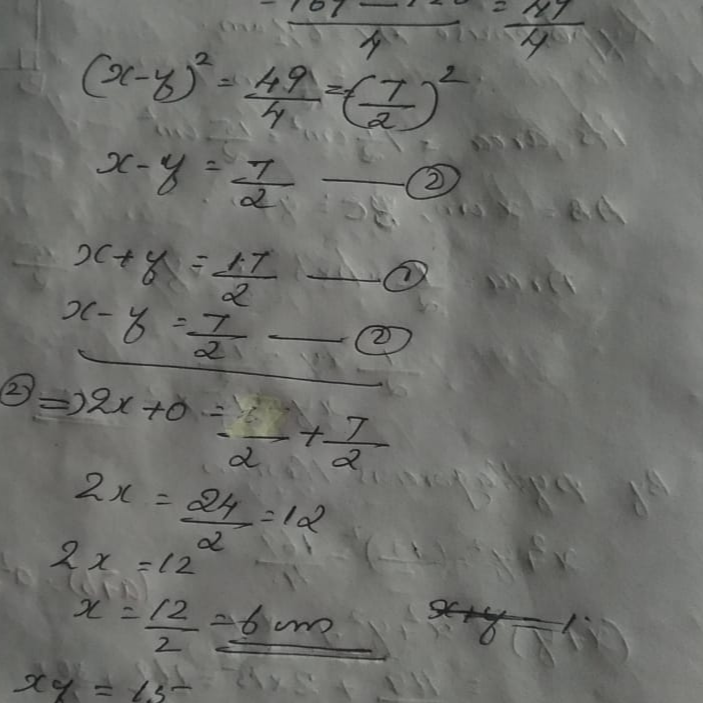 = 49/4
(x-y)² = 49/4 = (7/2)²
x-y = 7/2 —— ②
x+y = 17/2 —— ①
x-y = 7/2 —— ②
② ⇒ 2x+0 = /2 + 7/2
2x = 24/2 = 12
2x = 12
x = 12/2 = 6 cm
xy = 15